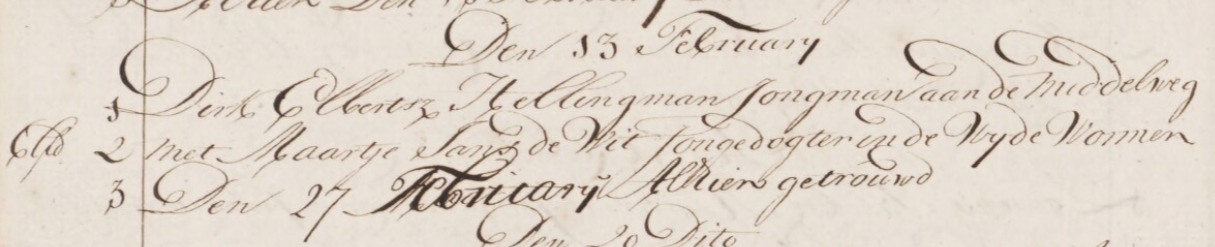 Den 13 February
1 Dirk Elbertsz Hellingman Jongman aan de Middelweg
2 met Maartje Jansz de Wit Jongedogter in de Wyde Wormer
3 Den 27 February Alhier getrouwd
Den 20 Dito